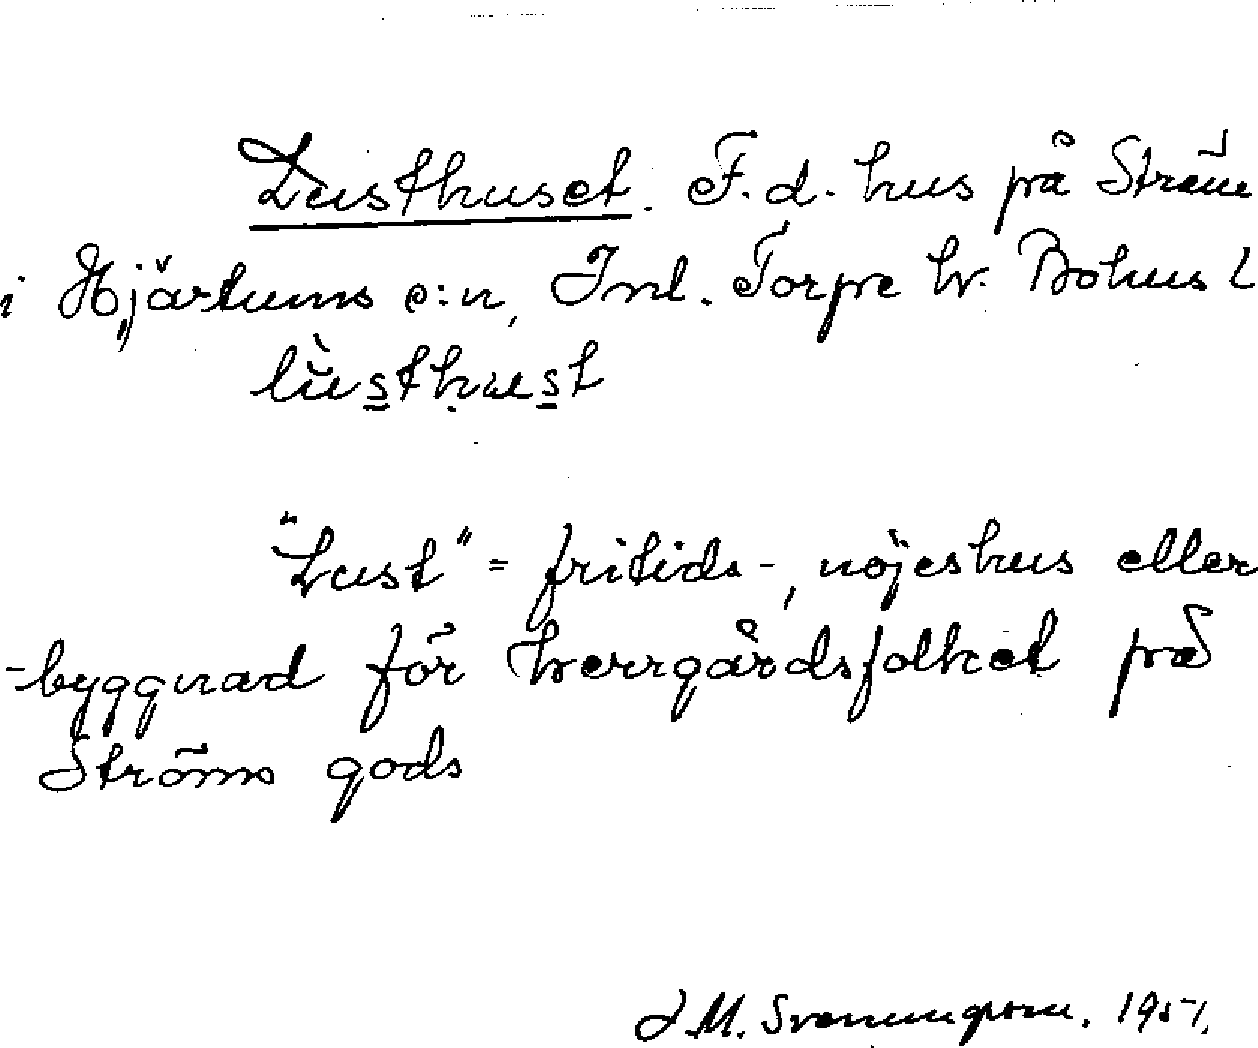 Lusthuset. F.d. hus på Ström
i Hjärtums s:n, Inl. Torpe hr. Bohus l
lùsthust
"Lust" = fritids-, nöjeshus eller
-byggnad för herrgårdsfolket på
Ströms gods
J.M. Svenungsson. 1951.